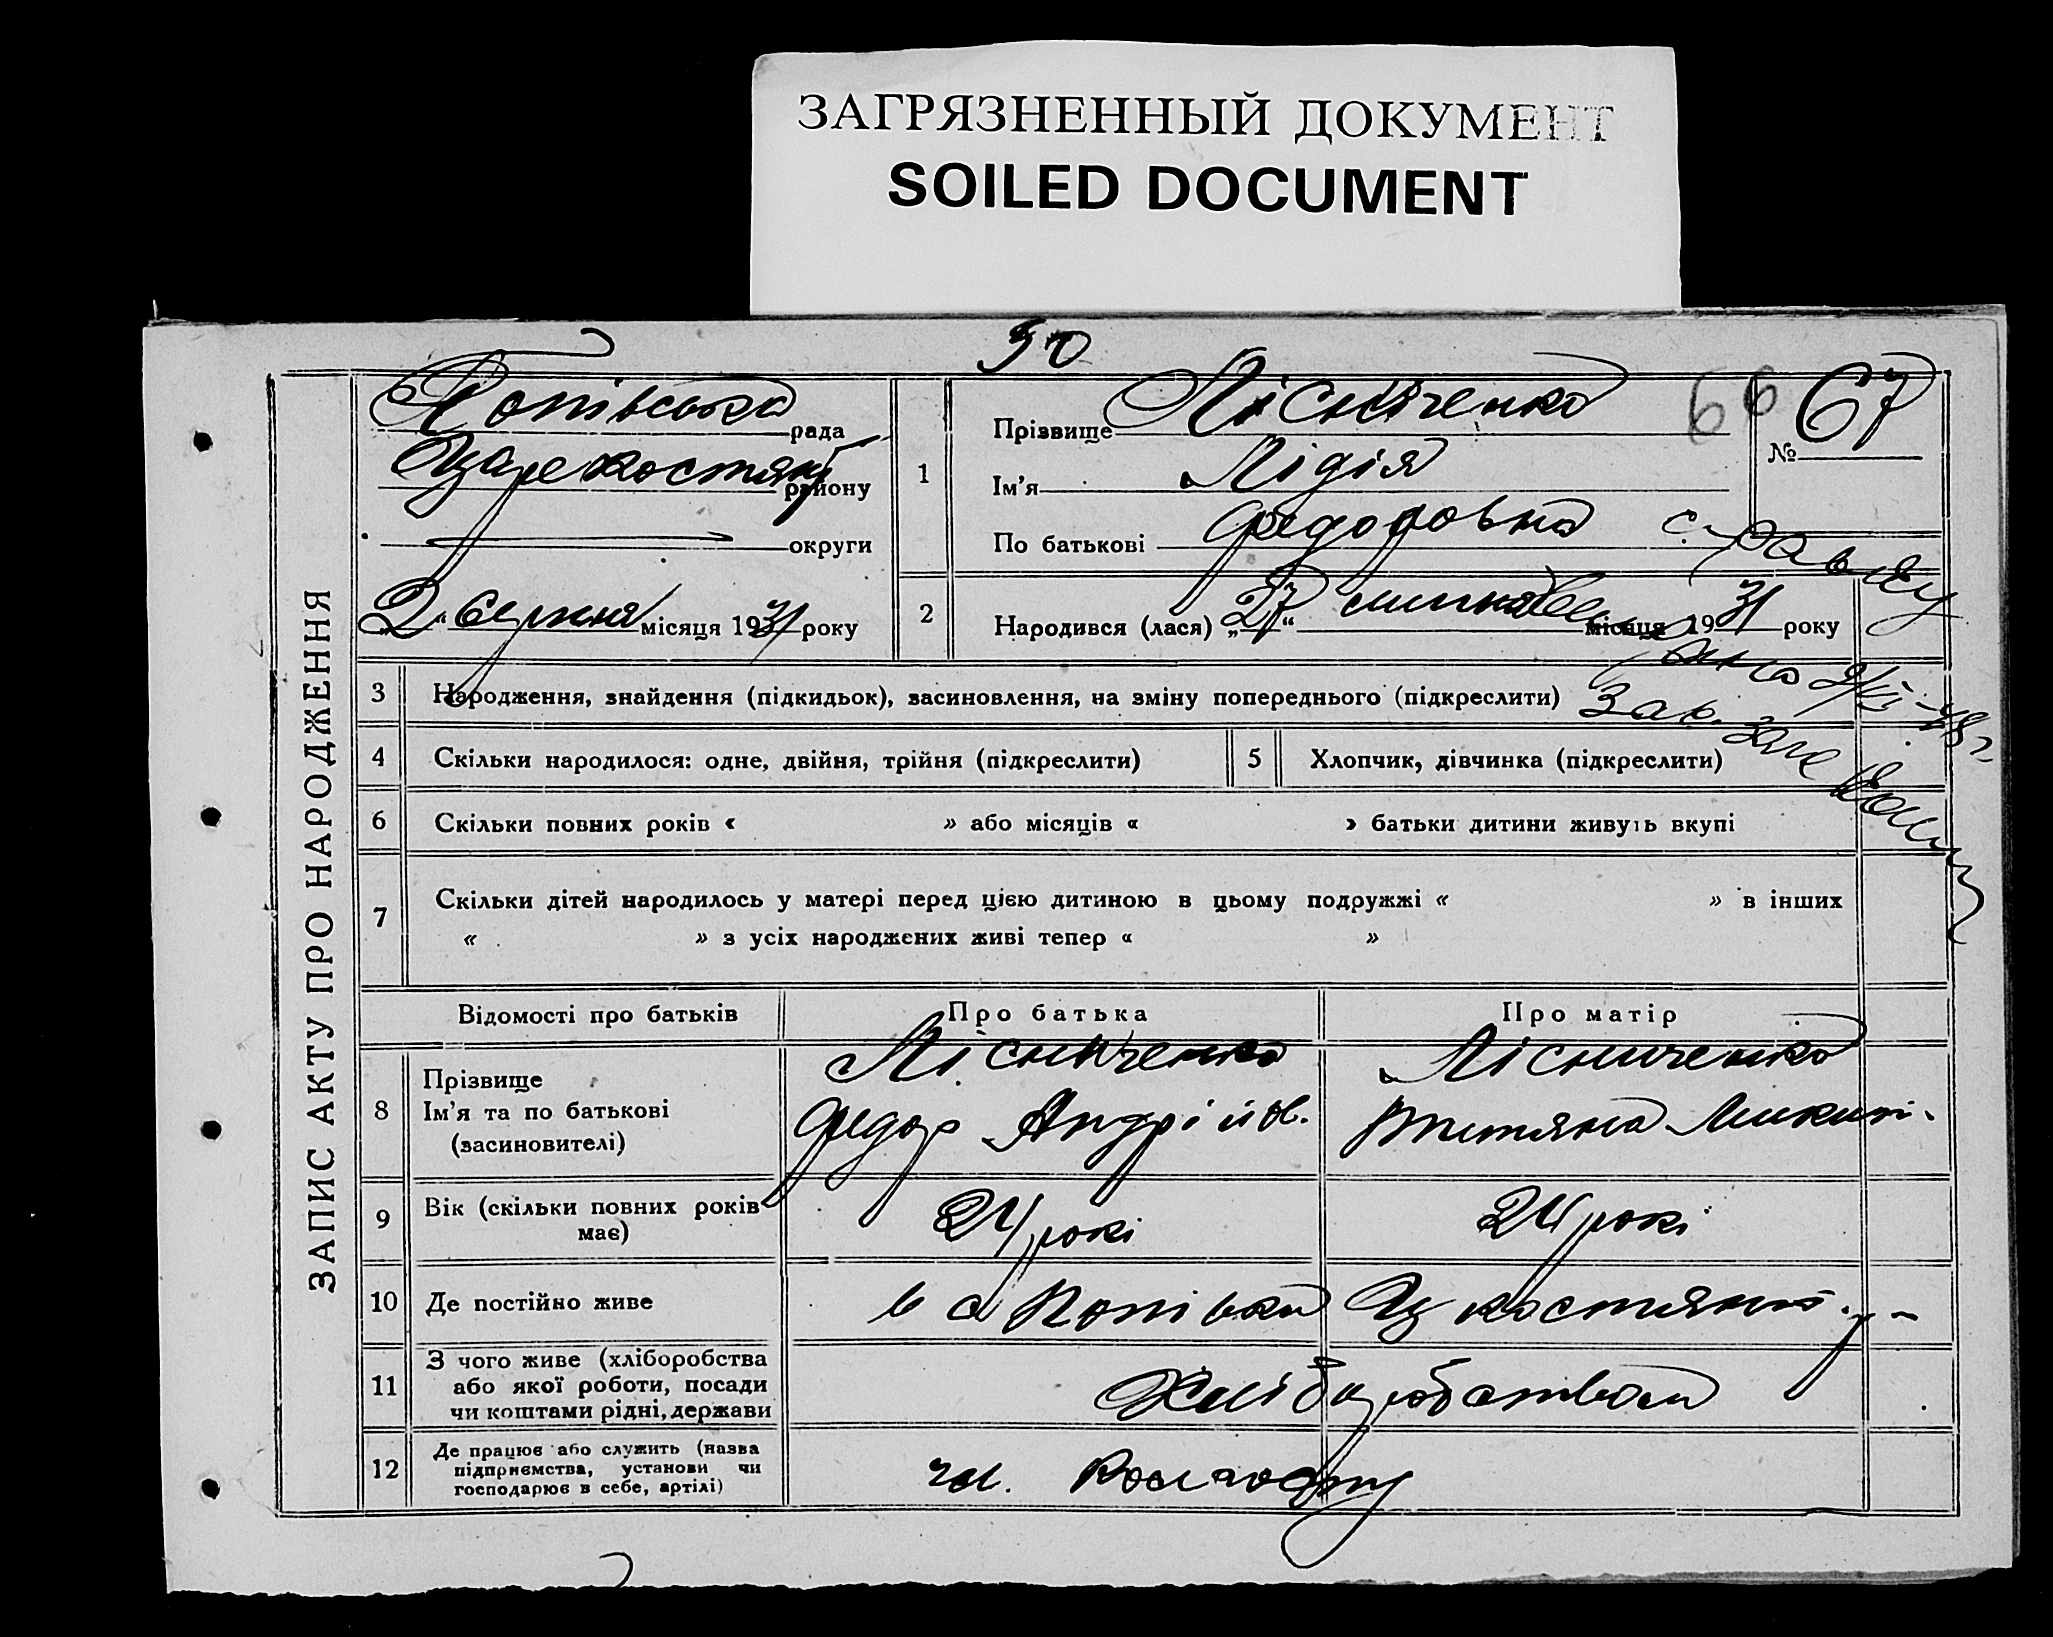 ЗАГРЯЗНЕННЫЙ ДОКУМЕНТ
SOILED DOCUMENT
30
ЗАПИС АКТУ ПРО НАРОДЖЕННЯ
Попівська рада
Царекостянт району
округи
„2“ Серпня місяця 1931 року
1
Прізвище Лісниченко
Ім'я Лідія
По батькові Федоровна
66
№ 67
2
Народився (лася) „27“ липня місяця 1931 року
справку
3
Народження, знайдення (підкидьок), засиновлення, на зміну попереднього (підкреслити)
Зав.
4
Скільки народилося: одне, двійня, трійня (підкреслити)
5
Хлопчик, дівчинка (підкреслити)
6
Скільки повних років « » або місяців « » батьки дитини живуть вкупі
7
Скільки дітей народилось у матері перед цією дитиною в цьому подружжі « » в інших
« » з усіх народжених живі тепер « »
Відомості про батьків
Про батька
Про матір
8
Прізвище
Ім'я та по батькові
(засиновителі)
Лісниченко
Федор Андрійов.
Лісниченко
Титяна Микит.
9
Вік (скільки повних років
має)
24 рокі
24 рокі
10
Де постійно живе
в с Попівки Ц костянт. р-
11
З чого живе (хліборобства
або якої роботи, посади
чи коштами рідні, держави
Хліборобством
12
Де працює або служить (назва
підприємства, установи чи
господарює в себе, артілі)
чл. Колгоспу